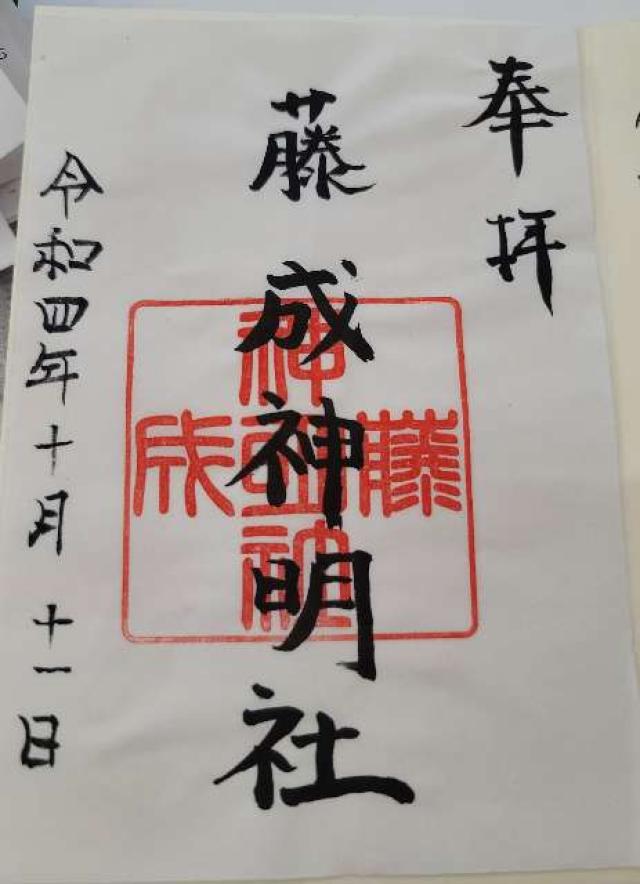 奉拝
藤成神明社
令和四年十月十一日
藤
神明社
成